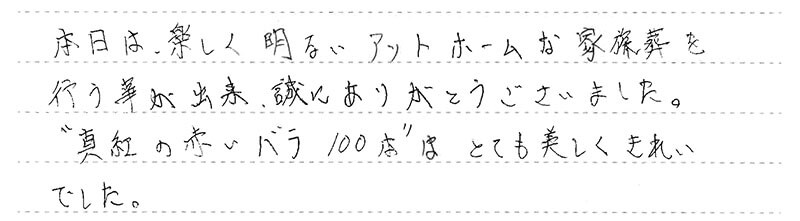 本日は、楽しく明るいアットホームな家族葬を
行う事が出来、誠にありがとうございました。
"真紅の赤いバラ100本"は とても美しくきれい
でした。